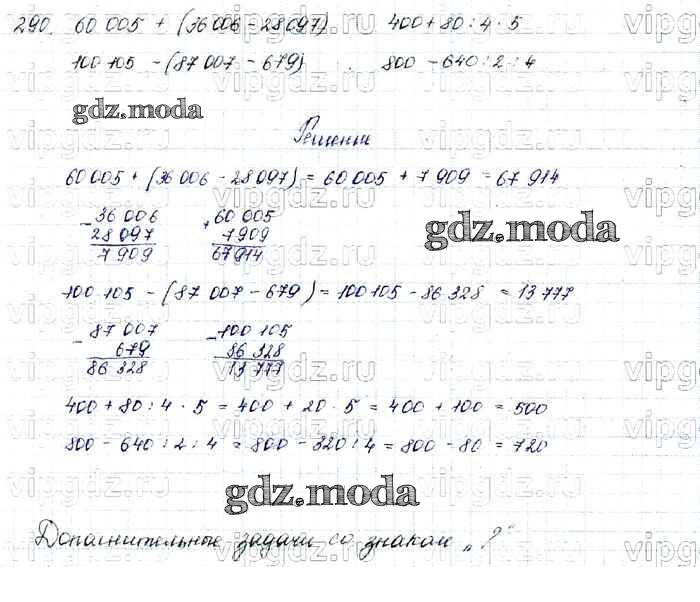 290. 60 005 + (36 006 - 28 097) 400 + 80 : 4 · 5
100 105 - (87 007 - 679) 800 - 640 : 2 : 4
gdz.moda
Решение
60 005 + (36 006 - 28 097) = 60 005 + 7 909 = 67 914
- 36 006 + 60 005
28 097 7 909
7 909 67 914
gdz.moda
100 105 - (87 007 - 679) = 100 105 - 86 328 = 13 777
- 87 007 - 100 105
679 86 328
86 328 13 777
400 + 80 : 4 · 5 = 400 + 20 · 5 = 400 + 100 = 500
800 - 640 : 2 : 4 = 800 - 320 : 4 = 800 - 80 = 720
gdz.moda
Дополнительные задачи со знаком „?"
vipgdz.ru